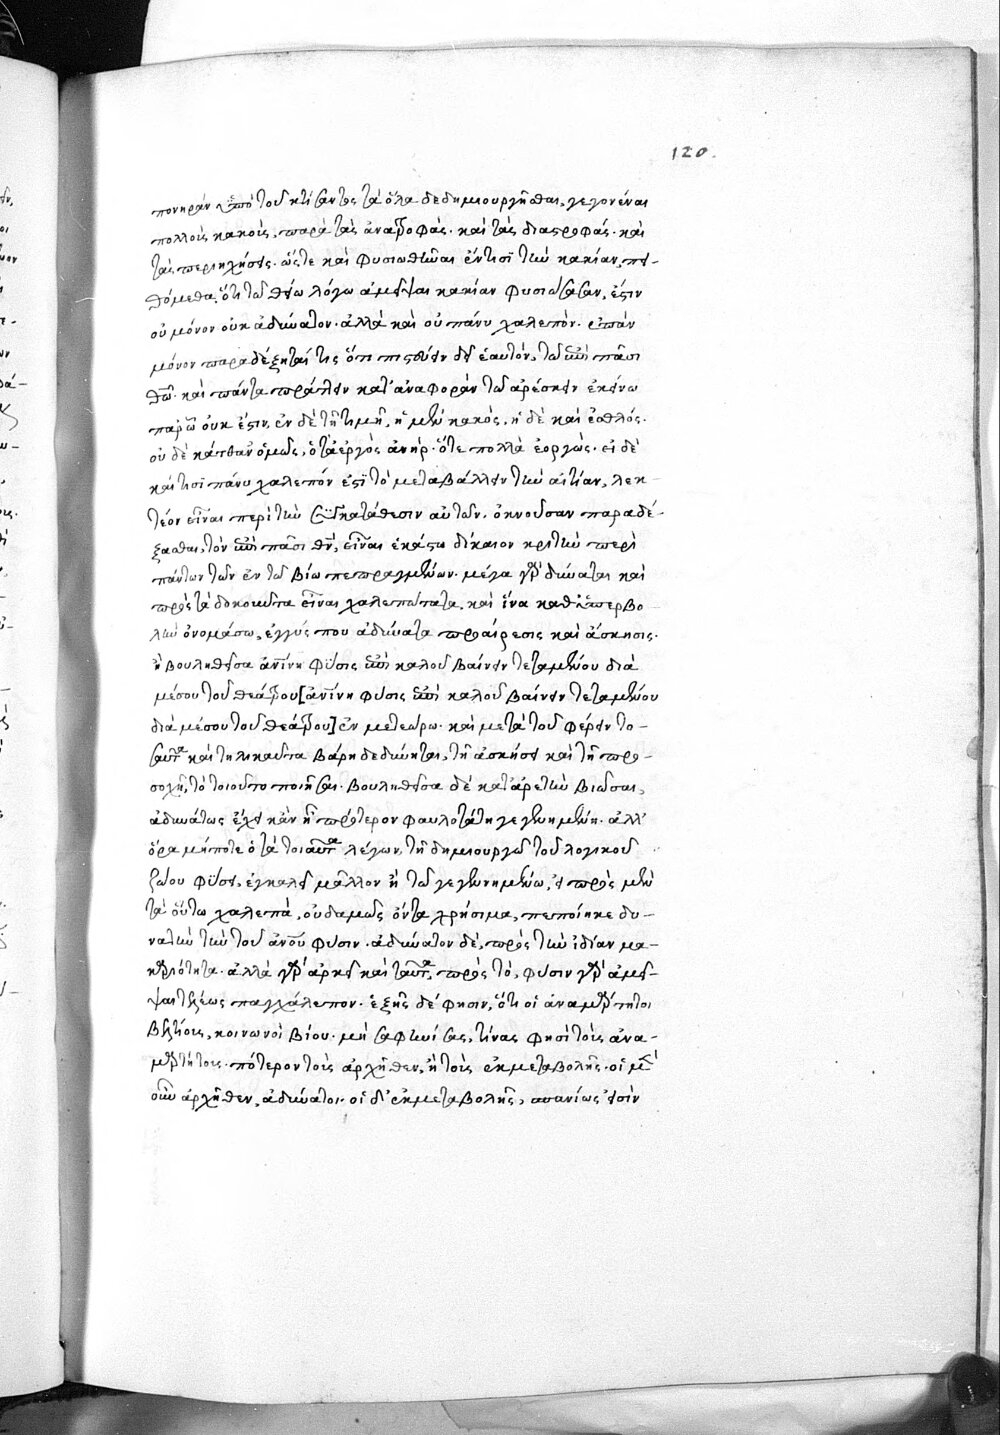 120.
πονηρὰν ὑπὸ τοῦ κτίσαντος τὰ ὅλα δεδημιουργῆσθαι, γεγονέναι
πολλοὺς κακοὺς, παρὰ τὰς ἀναστροφάς. καὶ τὰς διαστροφάς. καὶ
τὰς περιηχήσεις. ὥστε καὶ φυσιωθῆναι ἔν τισι τὴν κακίαν, πει-
θόμεθα, ὅτι τῷ θείῳ λόγῳ ἀμεῖψαι κακίαν φυσιώσασαν, ἐστὶν
οὐ μόνον οὐκ ἀδύνατον. ἀλλὰ καὶ οὐ πάνυ χαλεπόν. ἐπὰν
μόνον παραδέξηταί τις ὅτι πιστεύειν δεῖ ἑαυτὸν, τῷ ἐπὶ πᾶσι
θεῷ. καὶ πάντα πράττειν κατ' ἀναφορὰν τοῦ ἀρέσκειν ἐκείνῳ
παρ' ᾧ οὐκ ἔστιν, ἐν δὲ τῇ τιμῇ, ἡ μὲν κακὸς, ἡ δὲ καὶ ἐσθλός.
οὐδὲ κάτθαν' ὁμῶς, ὅ τ' ἀεργὸς ἀνήρ. ὅτε πολλὰ ἐοργώς. εἰ δὲ
καί τισι πάνυ χαλεπόν ἐστι τὸ μεταβάλλειν τὴν αἰτίαν, λεκ-
τέον εἶναι περὶ τὴν συγκατάθεσιν αὐτῶν. ὀκνοῦσαν παραδέ-
ξασθαι, τὸν ἐπὶ πᾶσι θεὸν, εἶναι ἑκάστῳ δίκαιον κριτὴν περὶ
πάντων τῶν ἐν τῷ βίῳ πεπραγμένων. μέγα γὰρ δύναται καὶ
πρὸς τὰ δοκοῦντα εἶναι χαλεπώτατα, καὶ ἵνα καθ' ὑπερβο-
λὴν ὀνομάσω, ἐγγύς που ἀδύνατα προαίρεσις καὶ ἄσκησις.
ἢ βουληθεῖσα ἀνθρωπίνη φύσις ἐπὶ καλοῦ βαίνειν τεταμένου διὰ
μέσου τοῦ θεάτρου [ἀνθρωπίνη φύσις ἐπὶ καλοῦ βαίνειν τεταμένου
διὰ μέσου τοῦ θεάτρου] ἐν μετεώρῳ. καὶ μετὰ τοῦ φέρειν το-
σαῦτα καὶ τηλικαῦτα βάρη δεδύνηται, τῇ ἀσκήσει καὶ τῇ προ-
σοχῇ, τὸ τοιοῦτο ποιῆσαι. βουληθεῖσα δὲ κατ' ἀρετὴν βιῶσαι,
ἀδυνάτως ἔχει κἂν ᾖ πρότερον φαυλοτάτη γεγενημένη. ἀλλ'
ὅρα μήποτε ὁ τὰ τοιαῦτα λέγων, τῇ δημιουργῷ τοῦ λογικοῦ
ζώου φύσει, ἐγκαλεῖ μᾶλλον ἢ τῷ γεγενημένῳ, εἰ πρὸς μὲν
τὰ οὕτω χαλεπὰ, οὐδαμῶς ὄντα χρήσιμα, πεποίηκε δυ-
νατὴν τὴν τοῦ ἀνου φύσιν. ἀδύνατον δὲ, πρὸς τὴν ἰδίαν μα-
καριότητα. ἀλλὰ γὰρ ἀρκεῖ καὶ ταῦτα, πρὸς τὸ, φύσιν γὰρ ἀμεῖ-
ψαι τελέως παγχάλεπον. ἑξῆς δέ φησιν, ὅτι οἱ ἀναμάρτητοι
βελτίους, κοινωνοὶ βίου. μὴ σαφηνίσας, τίνας φησὶ τοὺς ἀνα-
μαρτήτους. πότερον τοὺς ἀρχῆθεν, ἢ τοὺς ἐκ μεταβολῆς. οἱ μὲν
οὖν ἀρχῆθεν, ἀδύνατοι. οἱ δ' ἐκ μεταβολῆς, σπανίως εἰσὶν